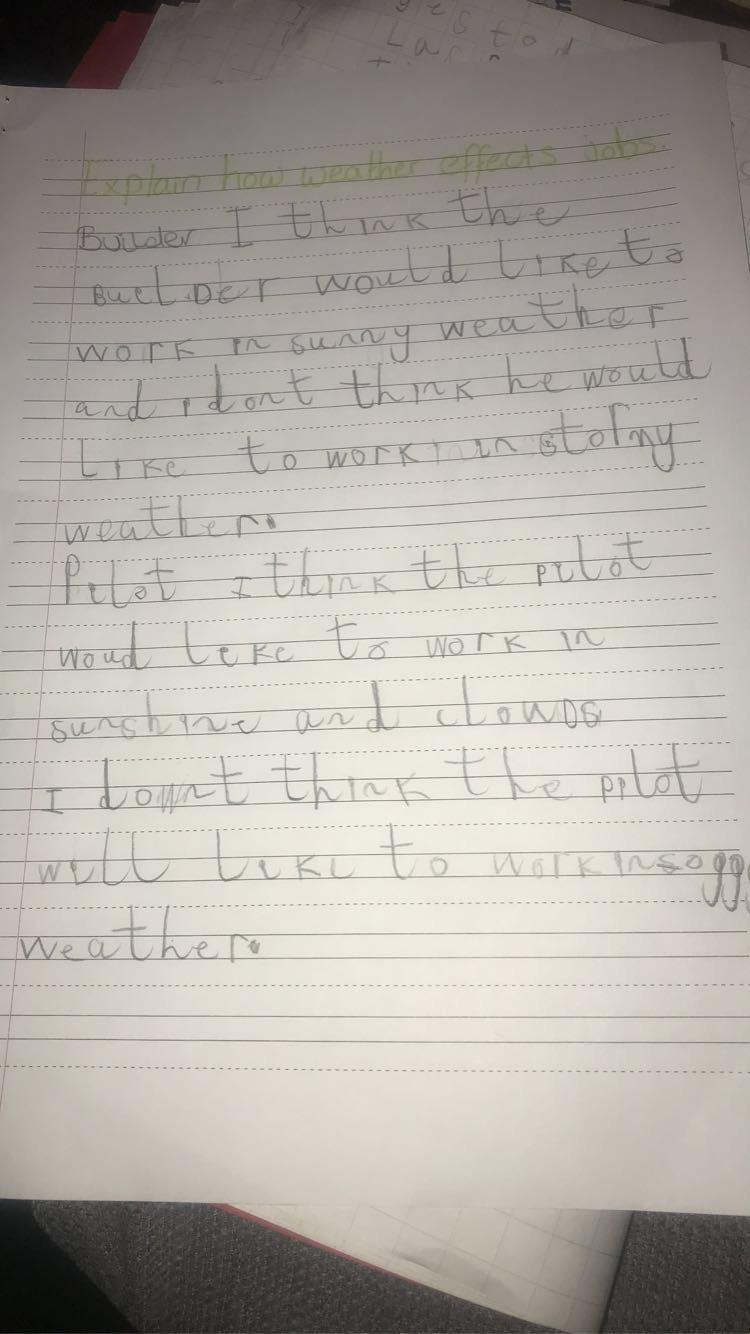 yes
Laston
Explain how weather effects jobs.
Builder I think the
buelder would like to
work in sunny weather
and i dont think he would
like to work in stormy
weather.
Pilot I think the pilot
woud leke to work in
sunshine and clowds
I downt think the pilot
will like to work in sogg
weather.